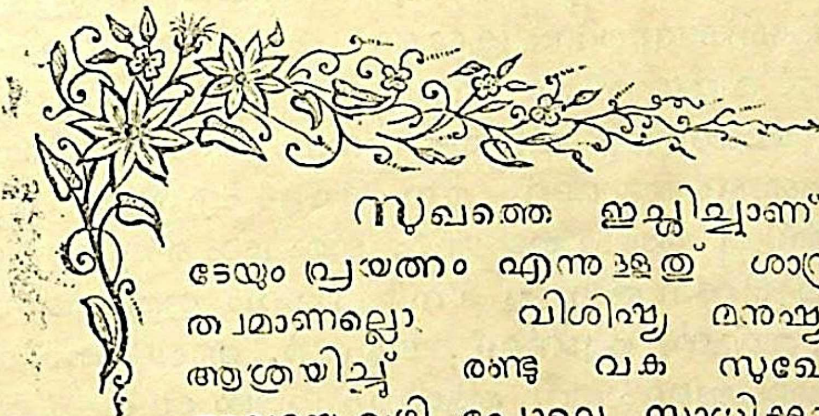 സുഖത്തെ ഇച്ഛിച്ചാണ്
ടേയും പ്രയത്നം എന്നുള്ളതു് ശാ
തമാണല്ലൊ. വിശിഷ്യ മനുഷ്യ
ആശ്രയിച്ച് രണ്ടു വക സുഖേ